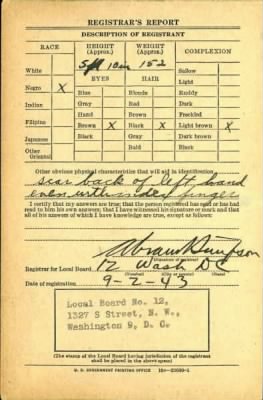 REGISTRAR'S REPORT
DESCRIPTION OF REGISTRANT
RACE HEIGHT (Approx.) WEIGHT (Approx.) COMPLEXION
5 ft 10 in 152
White Sallow
EYES HAIR Light
Negro X Blue Blonde Ruddy
Indian Gray Red Dark
Hazel Brown Freckled
Filipino Brown X Black X Light brown X
Japanese Black Gray Dark brown
Other Oriental Bald Black
Other obvious physical characteristics that will aid in identification
scar back of left hand
even with index finger
I certify that my answers are true; that the person registered has read or has had
read to him his own answers; that I have witnessed his signature or mark and that
all of his answers of which I have knowledge are true, except as follows:
Abram
(Signature of registrar)
Registrar for Local Board 12 Wash DC
(Number) (City or county) (State)
Date of registration 9-2-43
Local Board No. 12,
1327 S Street, N. W.,
Washington 9, D. C.
(The stamp of the Local Board having jurisdiction of the registrant
shall be placed in the above space.)
U. S. GOVERNMENT PRINTING OFFICE